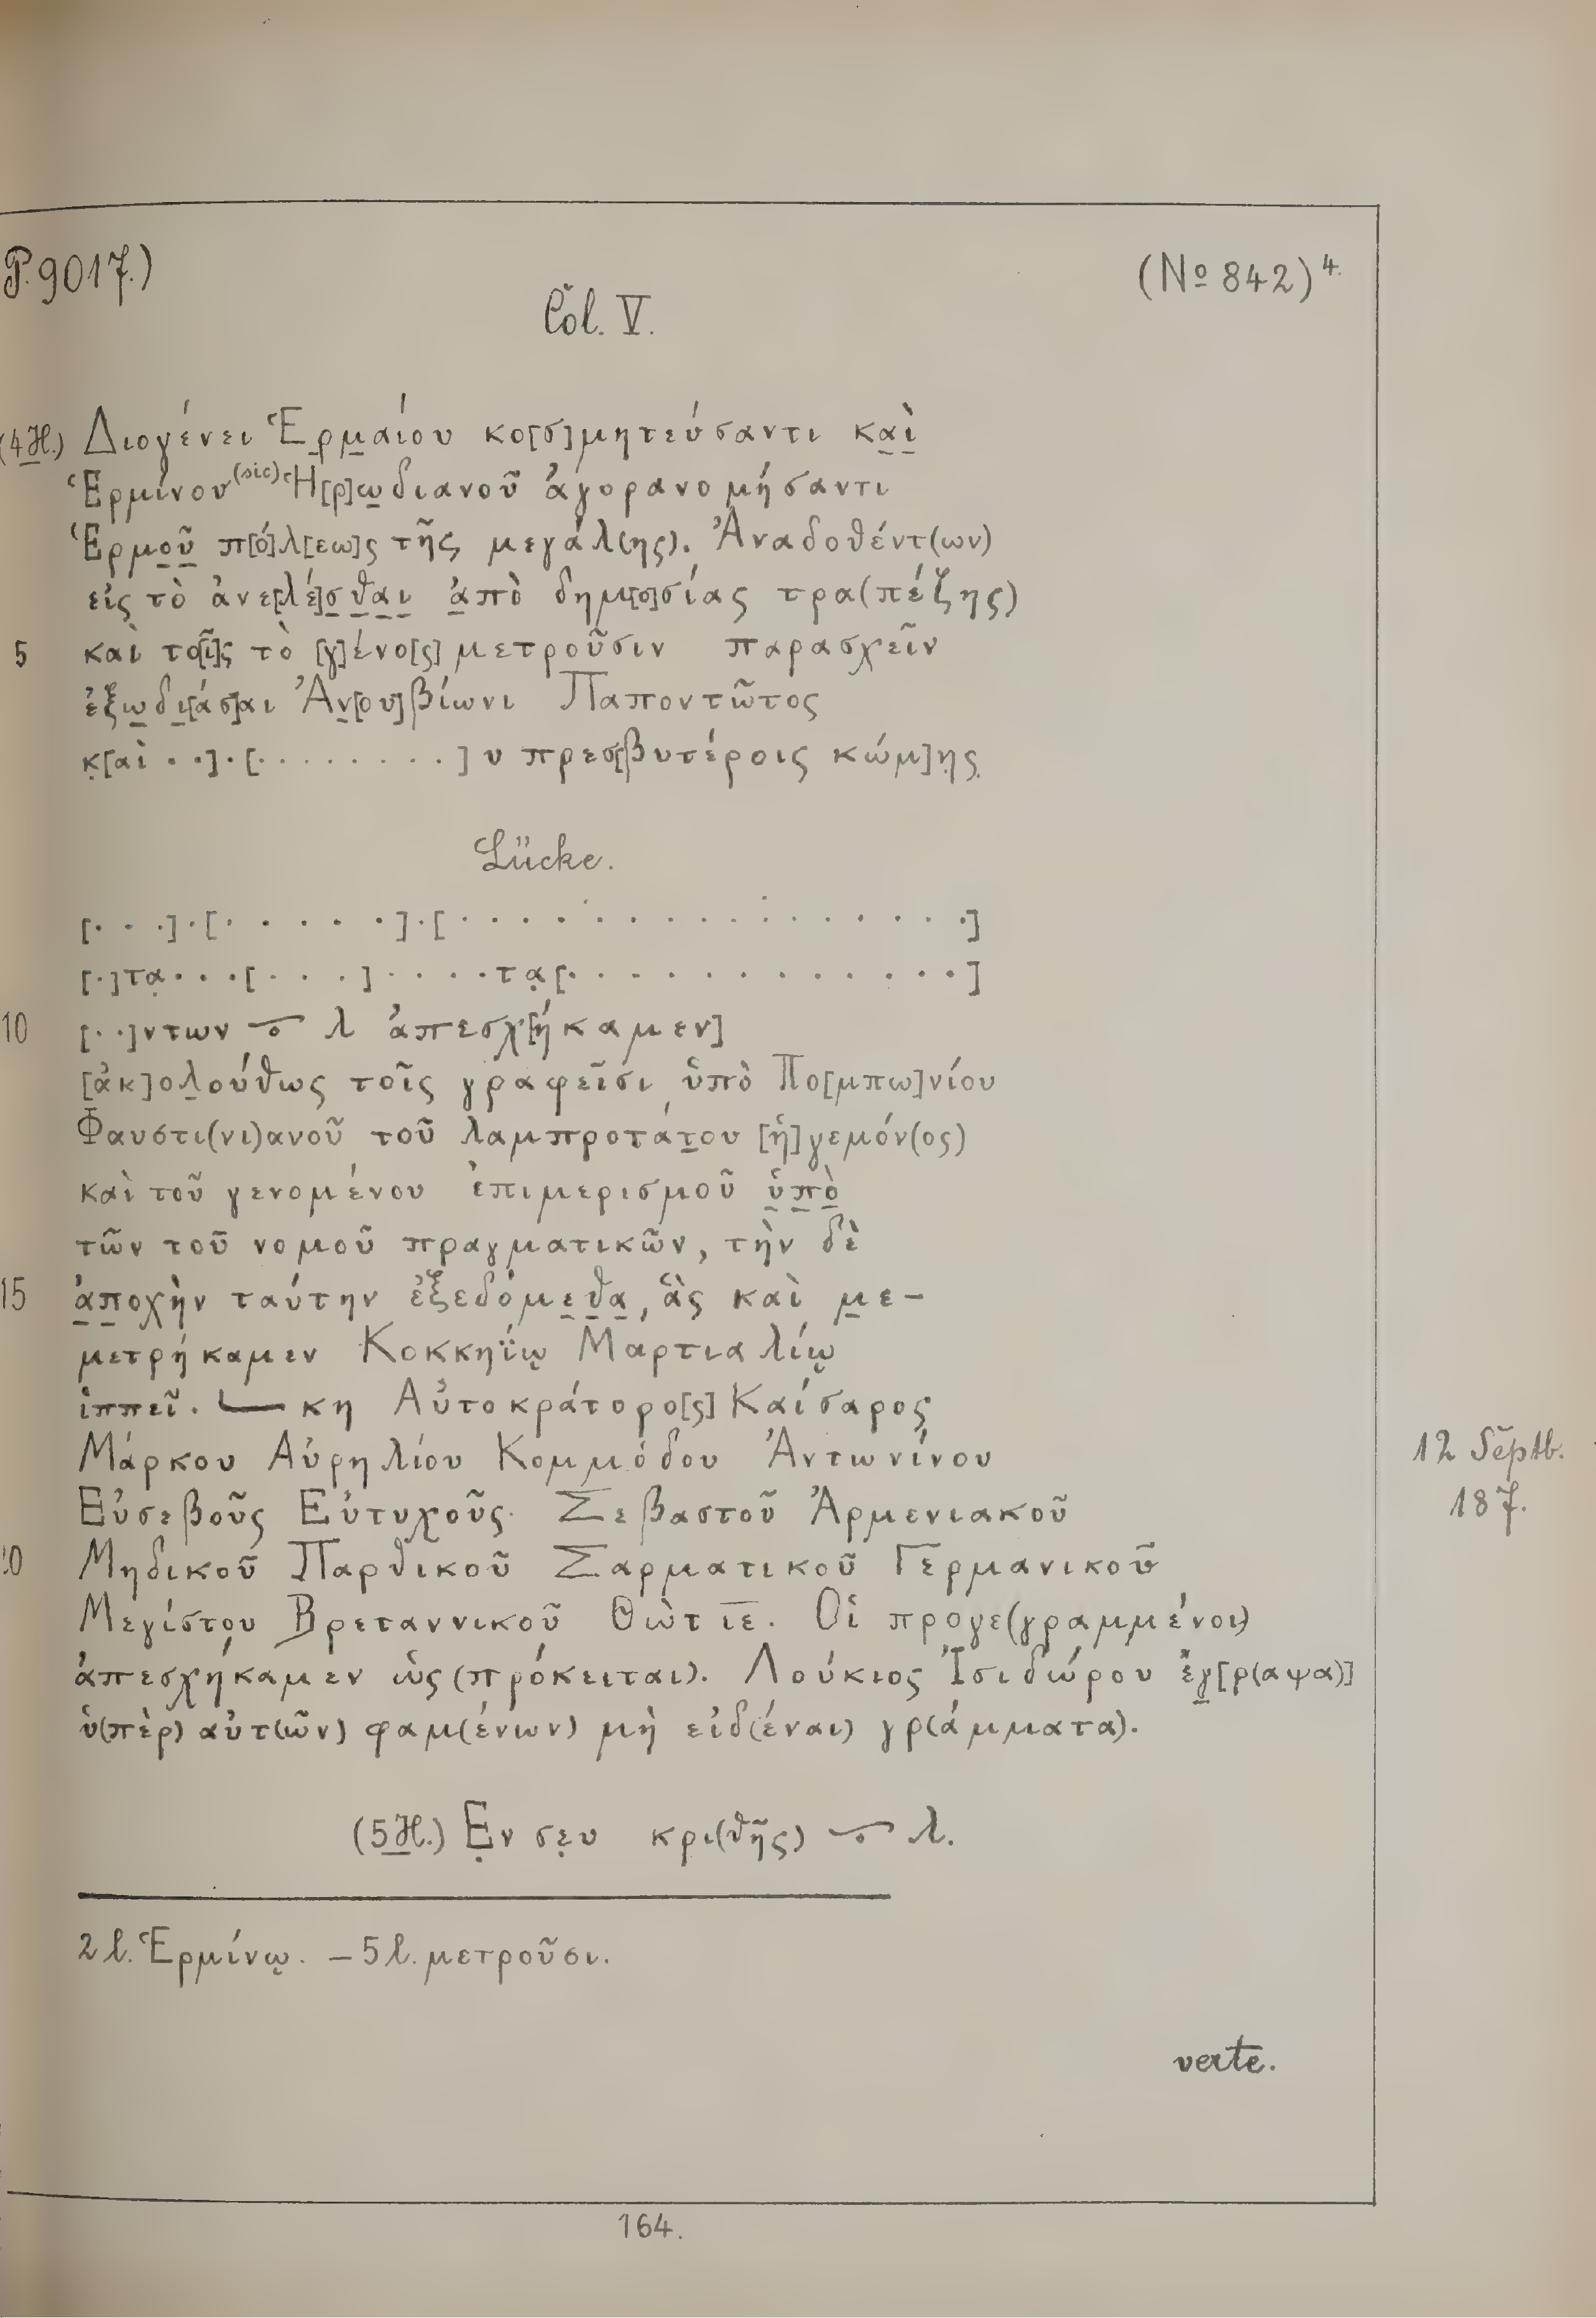 P. 9017.) (№ 842) 4.
Col. V.
(4 H.) Διογένει Ἑρ̣μ̣αίου κο[σ]μητεύσαντι κα̣ὶ̣
Ἑρμίνου (sic) Ἡ[ρ]ω̣διανοῦ ἀγορανομήσαντι
Ἑρμο̣ῦ̣ π[ό]λ[εω]ς τῆς μεγάλ(ης). Ἀναδοθέντ(ων)
εἰς τὸ ἀνε[λέ]σ̣θ̣α̣ι̣ ἀ̣πὸ δημ[ο]σίας τρα(πέζης)
5 καὶ το[ῖ]ς τὸ [γ]ένο[ς] μετροῦσιν παρασχεῖν
ἐξω̣δι̣[άσ]αι Ἀν̣[ου]βίωνι Παποντῶτος
κ̣[αὶ . .] . [. . . . . . . . .] υ πρεσ[βυτέροις κώμ]η̣ς̣
Lücke.
[. . .] . [. . . . .] . [. . . . . . . . . . . . . .]
[.]τα̣ . . . [. . . .] . . . . τα̣[. . . . . . . . . . .]
10 [. .]ντων ⨪ λ ἀπεσχ[ήκαμεν]
[ἀκ]ολ̣ούθως τοῖς γραφεῖσι ὑπὸ Πο[μπω]νίου
Φαυστι(νι)ανοῦ τοῦ λαμπροτάτ̣ου [ἡ]γεμόν(ος)
καὶ τοῦ γενομένου ἐπιμερισμοῦ ὑ̣π̣ὸ̣
τῶν τοῦ νομοῦ πραγματικῶν, τὴν δὲ
15 ἀ̣π̣οχὴν ταύτην ἐξεδόμε̣θ̣α̣, ἃς καὶ μ̣ε-
μετρήκαμεν Κοκκηΐῳ Μαρτιαλίῳ
ἱππεῖ. L κη Αὐτοκράτορο[ς] Καίσαρος
Μάρκου Αὐρηλίου Κομμόδου Ἀντωνίνου 12 Septb.
Εὐσεβοῦς Εὐτυχοῦς Σεβαστοῦ Ἀρμενιακοῦ 187.
20 Μηδικοῦ Παρθικοῦ Σαρματικοῦ Γερμανικοῦ
Μεγίστου Βρεταννικοῦ Θὼτ ιε. Οἱ προγε(γραμμένοι)
ἀπεσχήκαμεν ὡς (πρόκειται). Λούκιος Ἰσιδώρου ἔγ̣[ρ(αψα)]
ὑ(πὲρ) αὐτ(ῶν) φαμ(ένων) μὴ εἰδ(έναι) γρ(άμματα).
(5 H.) Ε̣ν σε̣υ κρι(θῆς) ⨪ λ.
2 l. Ἑρμίνῳ. — 5 l. μετροῦσι.
verte.
164.